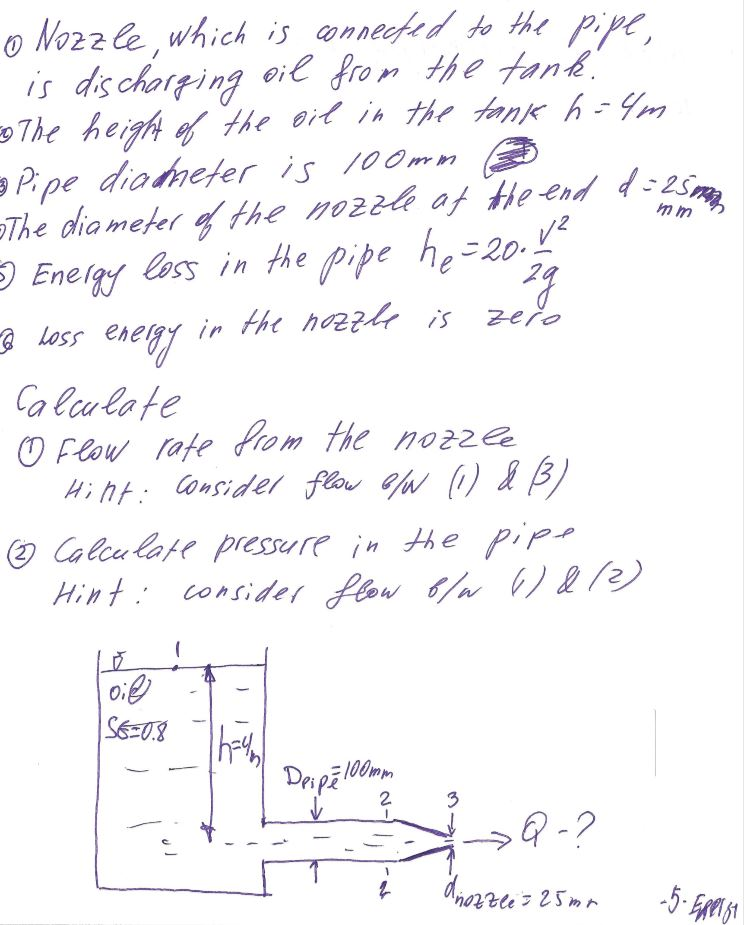 ① Nozzle, which is connected to the pipe,
is discharging oil from the tank.
② The height of the oil in the tank h = 4m
③ Pipe diameter is 100mm
The diameter of the nozzle at the end d = 25
mm
⑤ Energy loss in the pipe he = 20 · V²/2g
⑥ Loss energy in the nozzle is zero
Calculate
① Flow rate from the nozzle
Hint: consider flow b/w (1) & (3)
② Calculate pressure in the pipe
Hint: consider flow b/w (1) & (2)
1
oil
SG=0.8
h=4m
Dpipe=100mm
2
3
Q - ?
2
dnozzle = 25mm
-5-